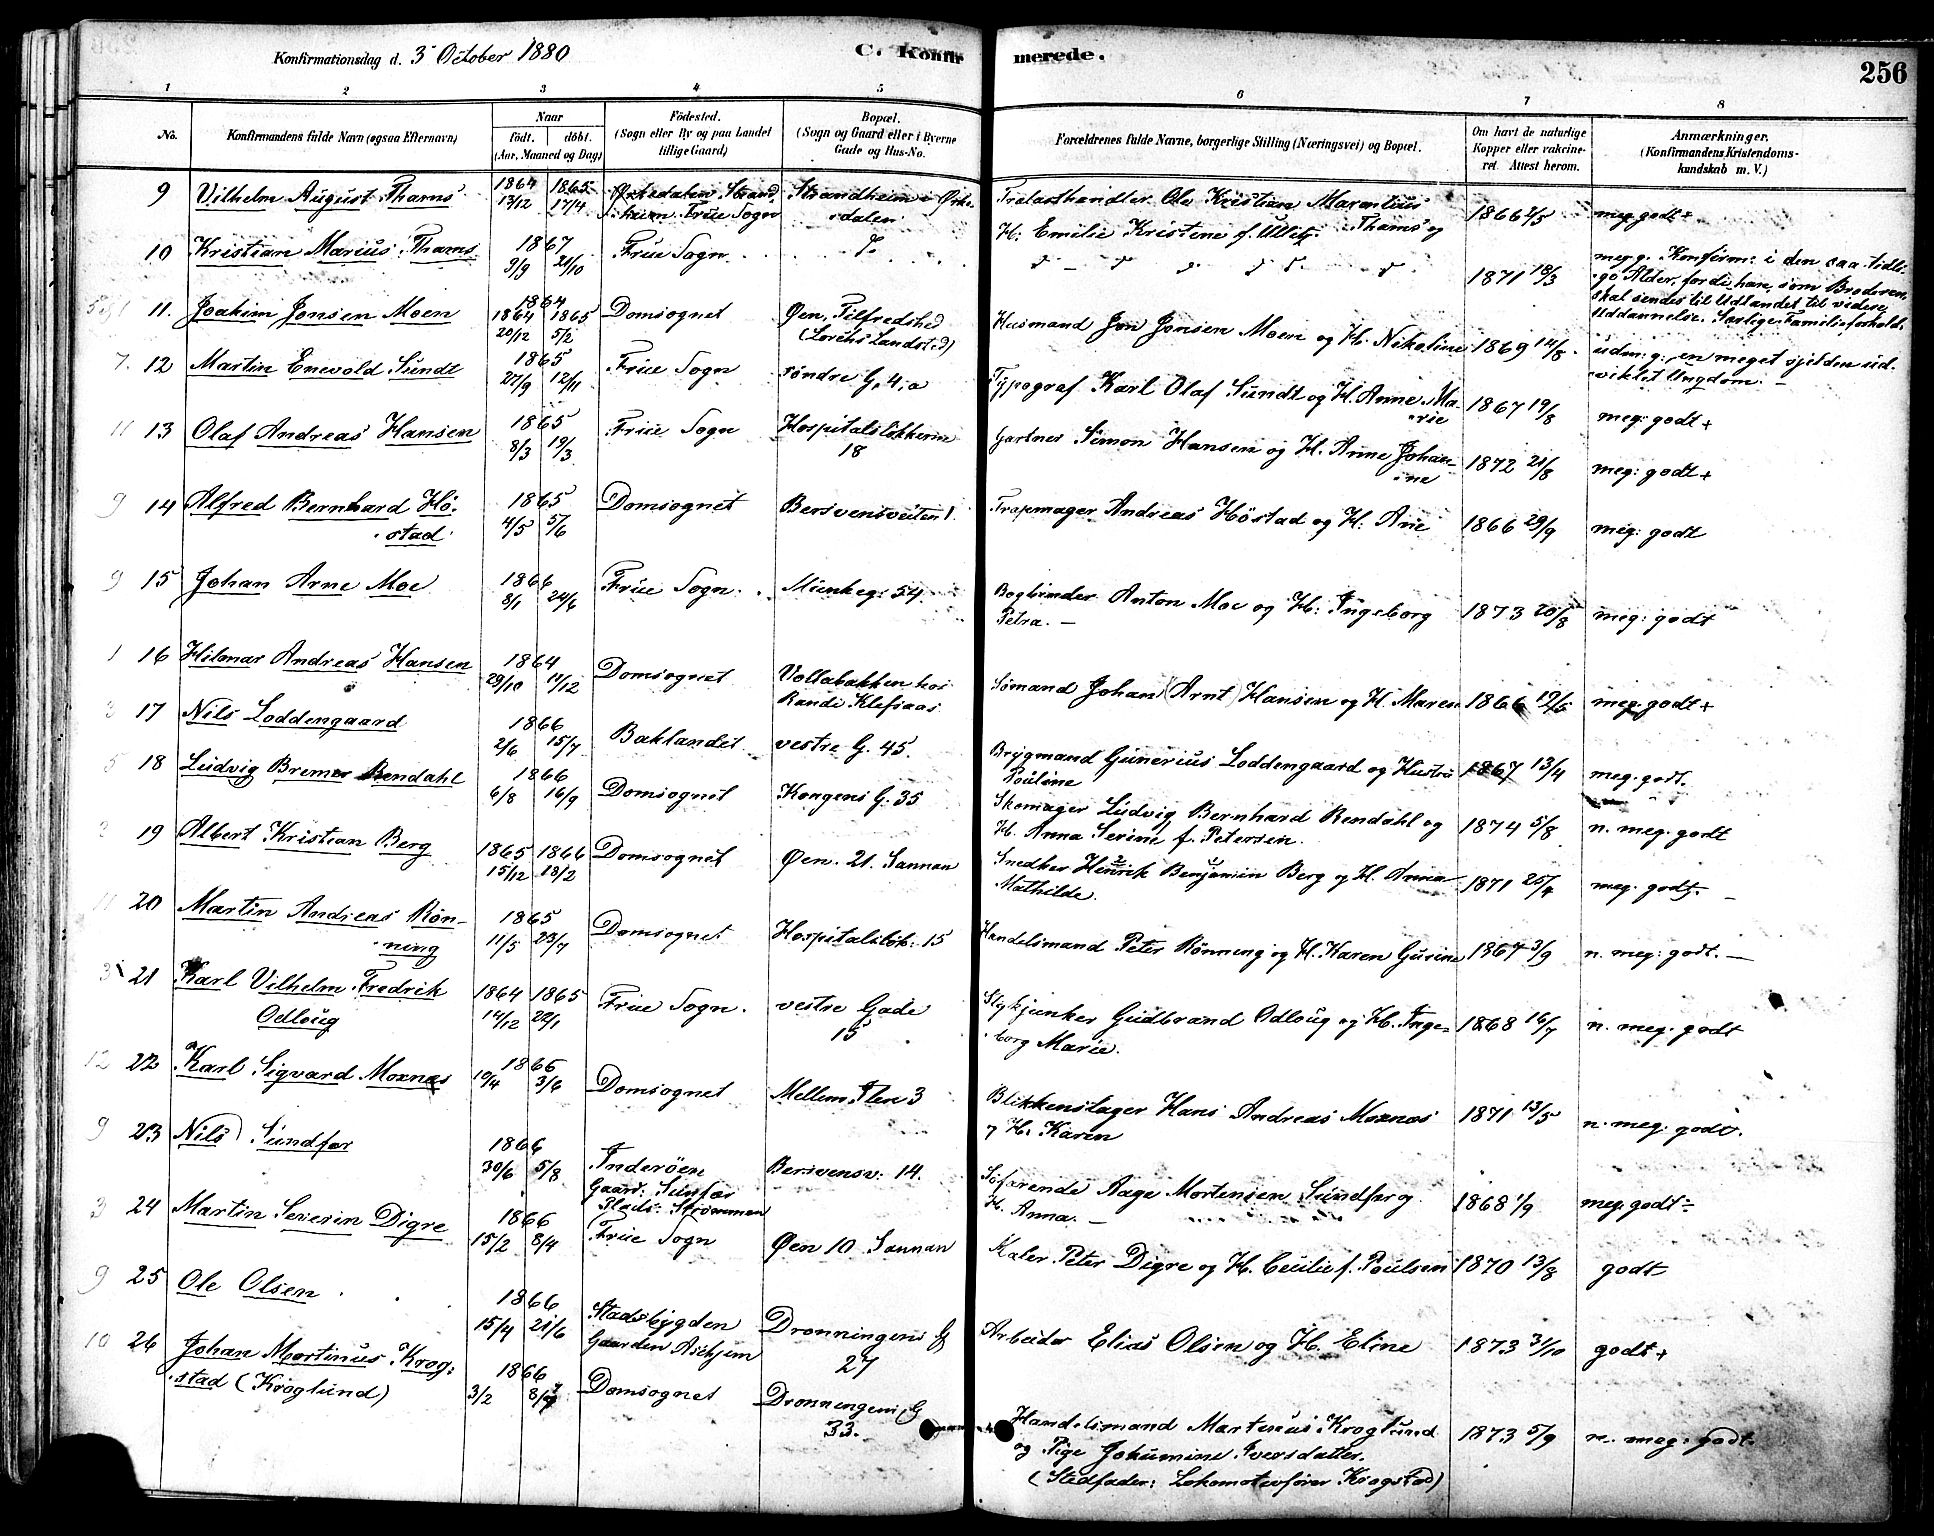 Konfirmationsdag d. 3 October 1880
C. Konfirmerede.
256
1 2 3 4 5 6 7 8
No.
Konfirmandens fulde Navn (ogsaa Efternavn)
Naar
födt. döbt.
(Aar, Maaned og Dag)
Födested.
(Sogn eller By og paa Landet
tillige Gaard)
Bopæl.
(Sogn og Gaard eller i Byerne
Gade og Hus-No.
Forældrenes fulde Navne, borgerlige Stilling (Næringsvei) og Bopæl.
Om havt de naturlige
Kopper eller vakcine-
ret Attest herom.
Anmærkninger.
(Konfirmandens Kristendoms-
kundskab m. V.)
9 Vilhelm August Thams 1864 13/12 1865 17/4 Frue Sogn Strandheim i Orke-
dalen Trælasthandler Ole Kristian Marentius Thams og
H: Emilie Kristine f. 1866 2/5 meg godt +
10 Kristian Marius Thams 1867 9/9 21/10 Frue Sogn 1871 18/3 meg g. Konfirm: i den saa tidli-
ge Alder, fordi han, som Broderen,
skal sendes til Udlandet til videre
Uddannelse. Familieforhold.
11. Joakim Jonsen Moen 1864
1864 20/12 1865 5/2 Domsognet Öen, Tilfredshed
(Lorchs Landsted) Husmand Jon Jonsen Moen og H. Nikoline 1869 14/8 udm: g: en meget sjelden ud-
viklet Ungdom. -
7. 12 Martin Enevold Sundt 1865 27/9 12/11 Frue Sogn söndre G. 4, a Typograf Karl Olaf Sundt og H. Anne Ma-
rie 1867 19/8 meg: godt +
11 13 Olaf Andreas Hansen 1865 8/3 19/3 Frue Sogn Hospitalslökkerne
18 Gartner Simon Hansen og H. Anne Johan-
ine 1872 21/8 meg: godt +
9 14 Alfred Bernhard Hö-
stad 1865 4/5 5/6 Domsognet Bersvensveiten 1. Andreas Höstad og H. Ane 1866 29/9 meg: godt
9 15 Johan Arne Moe 1866 8/1 24/6 Frue Sogn. Munkeg: 54. Bogbinder Anton Moe og H: Ingeborg
Petra. - 1873 20/8 meg: godt
1 16 Hilmar Andreas Hansen 1864 29/10 11/12 Domsognet Vollabakken hos
Randi Klefsaas Sömand Johan (Arnt) Hansen og H. Maren 1866 meg. godt +
3 17 Nils Loddengaard 1866 2/6 15/7 Baklandet vestre G. 45. Brygmand Gunerius Loddengaard og Hustru
Pouline 1867 13/4 meg. godt.
5 18 Ludvig Bremer Rendahl 1866 6/8 16/9 Domsognet Kongens G. 35 Skomager Ludvig Bernhard Rendahl og
H. Anna Serine f. Petersen. 1874 5/8 n. meg: godt
2 19 Albert Kristian Berg 1865 15/12 1866 18/2 Domsognet Öen. 21. Sannan Snedker Henrik Benjamin Berg og H. Anna
Mathilde. 1871 25/4 meg. godt. -
11 20 Martin Andreas Rön-
ning 1865 11/5 23/7 Domsognet Hospitalslök: 15 Handelsmand Peter Rönning og H. Karen Gurine 1867 3/9 n. meg: godt. -
3 21 Karl Vilhelm Fredrik
Odloug 1864 14/12 1865 22/1 Frue Sogn. vestre Gade
15 Stykjunker Gudbrand Odloug og H. Inge-
borg Marie. 1868 16/7 n. meg: godt
12 22 Karl Sigvard Moxnæs 1866 10/4 3/6 Domsognet Mellem Ilen 3 Blikkenslager Hans Andreas Moxnæs
og H. Karen 1871 13/5 n. meg. godt.
9 23 Nils Sundfær 1866 30/6 5/8 Inderöen
Gaard: Sunfær
Plads: Strömmen Bersvensv: 14. Söfarende Aage Mortensen Sundfær og
H. Anna. - 1868 1/9 meg. godt
3 24 Martin Severin Digre 1866 15/2 8/4 Frue Sogn Öen 10 Sannan Maler Peter Digre og H. Cecilie f. Poulsen 1870 13/8 godt
9 25 Ole Olsen 1866 15/4 21/6 Stadsbygden
Gaarden Askjem Dronningens G
27 Arbeider Elias Olsen og H. Eline 1873 31/10 godt +
10 26 Johan Martinus Krog-
stad (Kroglund) 1866 3/2 Domsognet Dronningens G
33. Handelsmand Martinus Kroglund
og Pige Johannine Iversdatter.
(Stedfader: Lokomotivförer Krogstad) 1873 5/9 n. meg: godt.